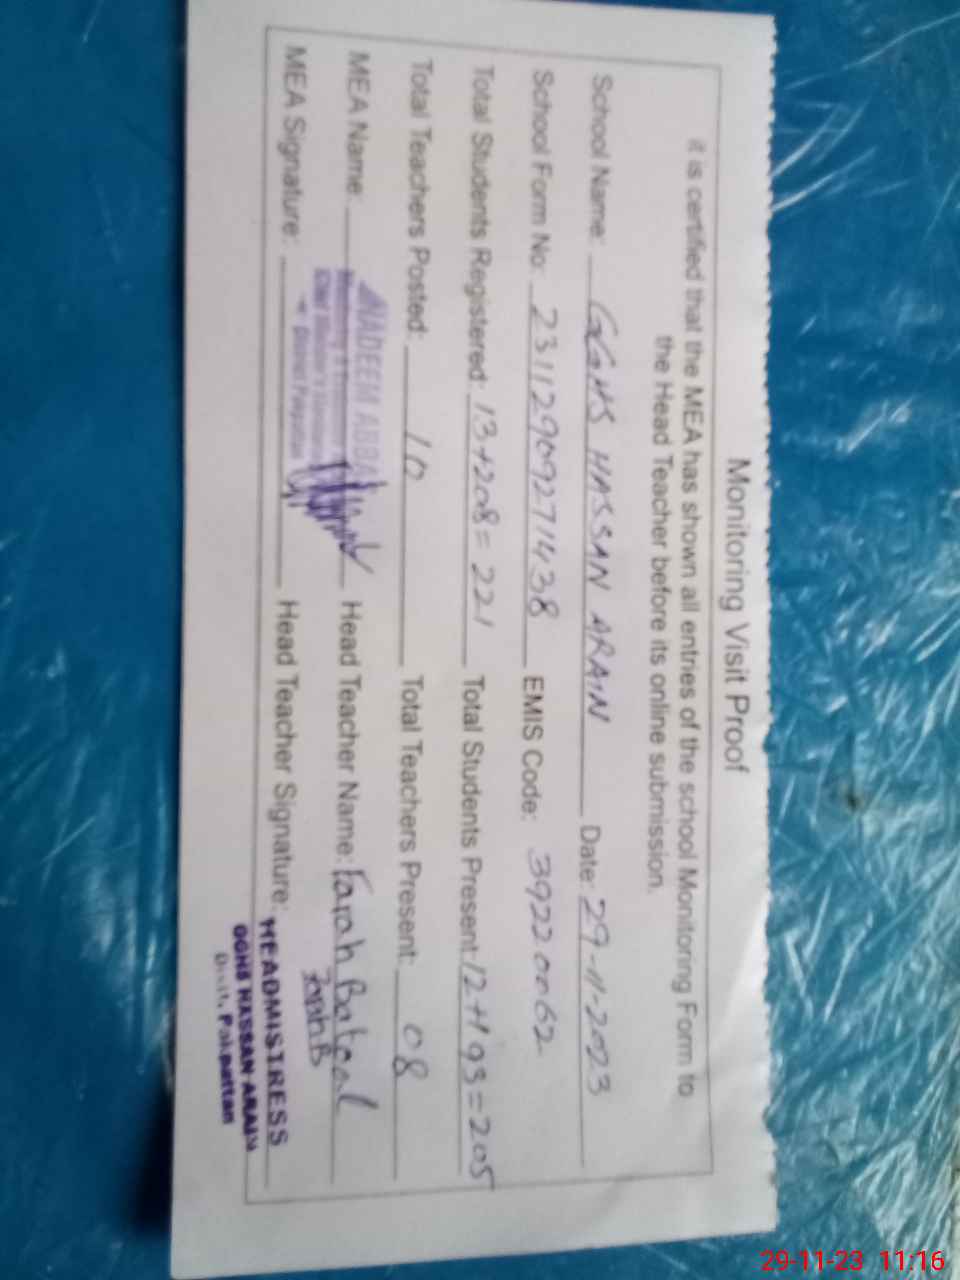 Monitoring Visit Proof
it is certified that the MEA has shown all entries of the school Monitoring Form to
the Head Teacher before its online submission.
School Name: GGHS HASSAN ARAIN Date: 29-11-2023
School Form No: 23112909271438 EMIS Code: 39220062
Total Students Registered: 13+208=221 Total Students Present: 12+193=205
Total Teachers Posted: 10 Total Teachers Present: 08
MEA Name: NADEEM ABBAS Head Teacher Name: Farah Batool
MEA Signature: Head Teacher Signature: Farah B
HEADMISTRESS
GGHS HASSAN ARAIN
Distt. Pakpattan
29-11-23 11:16